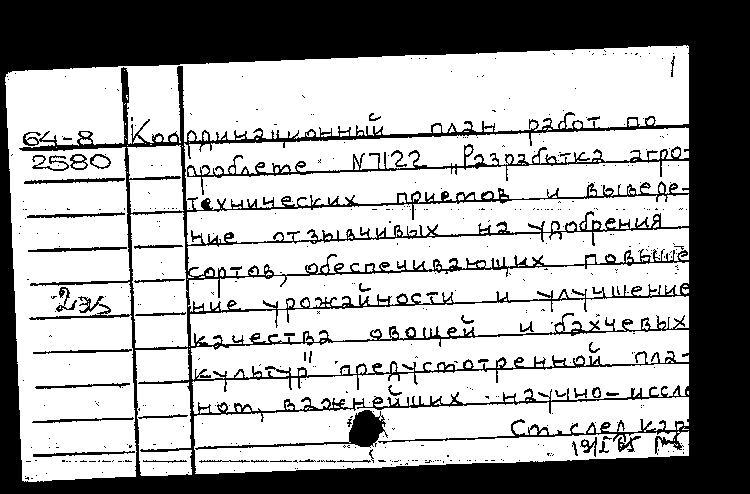 1
64-8 Координационный план работ по
2580 проблеме N7122 „Разработка агро-
технических приемов и выведе-
ние отзывчивых на удобрения
сортов, обеспечивающих повыше
2 экз ние урожайности и улучшение
качества овощей и бахчевых
культур" предусмотренной пла-
ном, важнейших научно-иссле
Ст. след кар